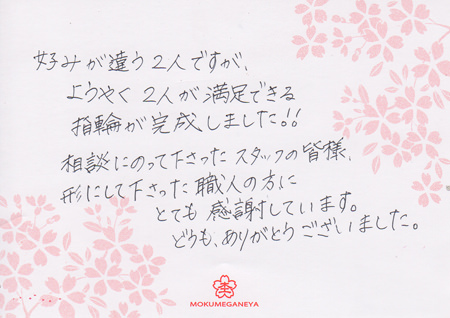 好みが違う2人ですが、
ようやく 2人が満足できる
指輪が完成しました!!
相談にのって下さった スタッフの皆様、
形にして下さった 職人の方に
とても 感謝しています。
どうも、ありがとう ございました。
MOKUMEGANEYA